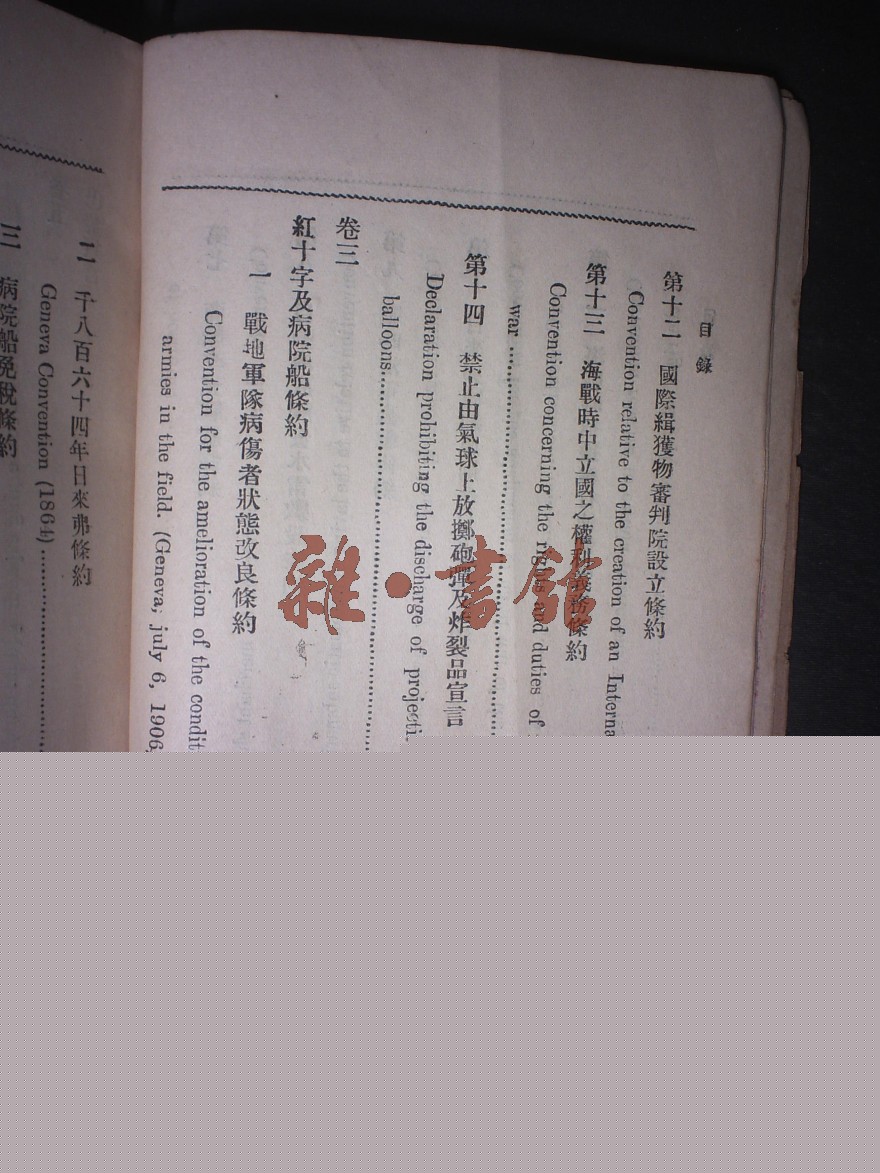 目錄
第十二 國際緝獲物審判院設立條約
Convention relative to the creation of an
第十三 海戰時中立國之權利義務條約
Convention concerning the rights and duties of
war
第十四 禁止由氣球上放擲砲彈及炸裂品宣言
Declaration prohibiting the discharge of
balloons
卷三
紅十字及病院船條約
一 戰地軍隊病傷者狀態改良條約
Convention for the amelioration of the
armies in the field. (Geneva, july 6, 1906,
二 千八百六十四年日來弗條約
Geneva Convention (1864)
三 病院船免稅條約
雜·書館